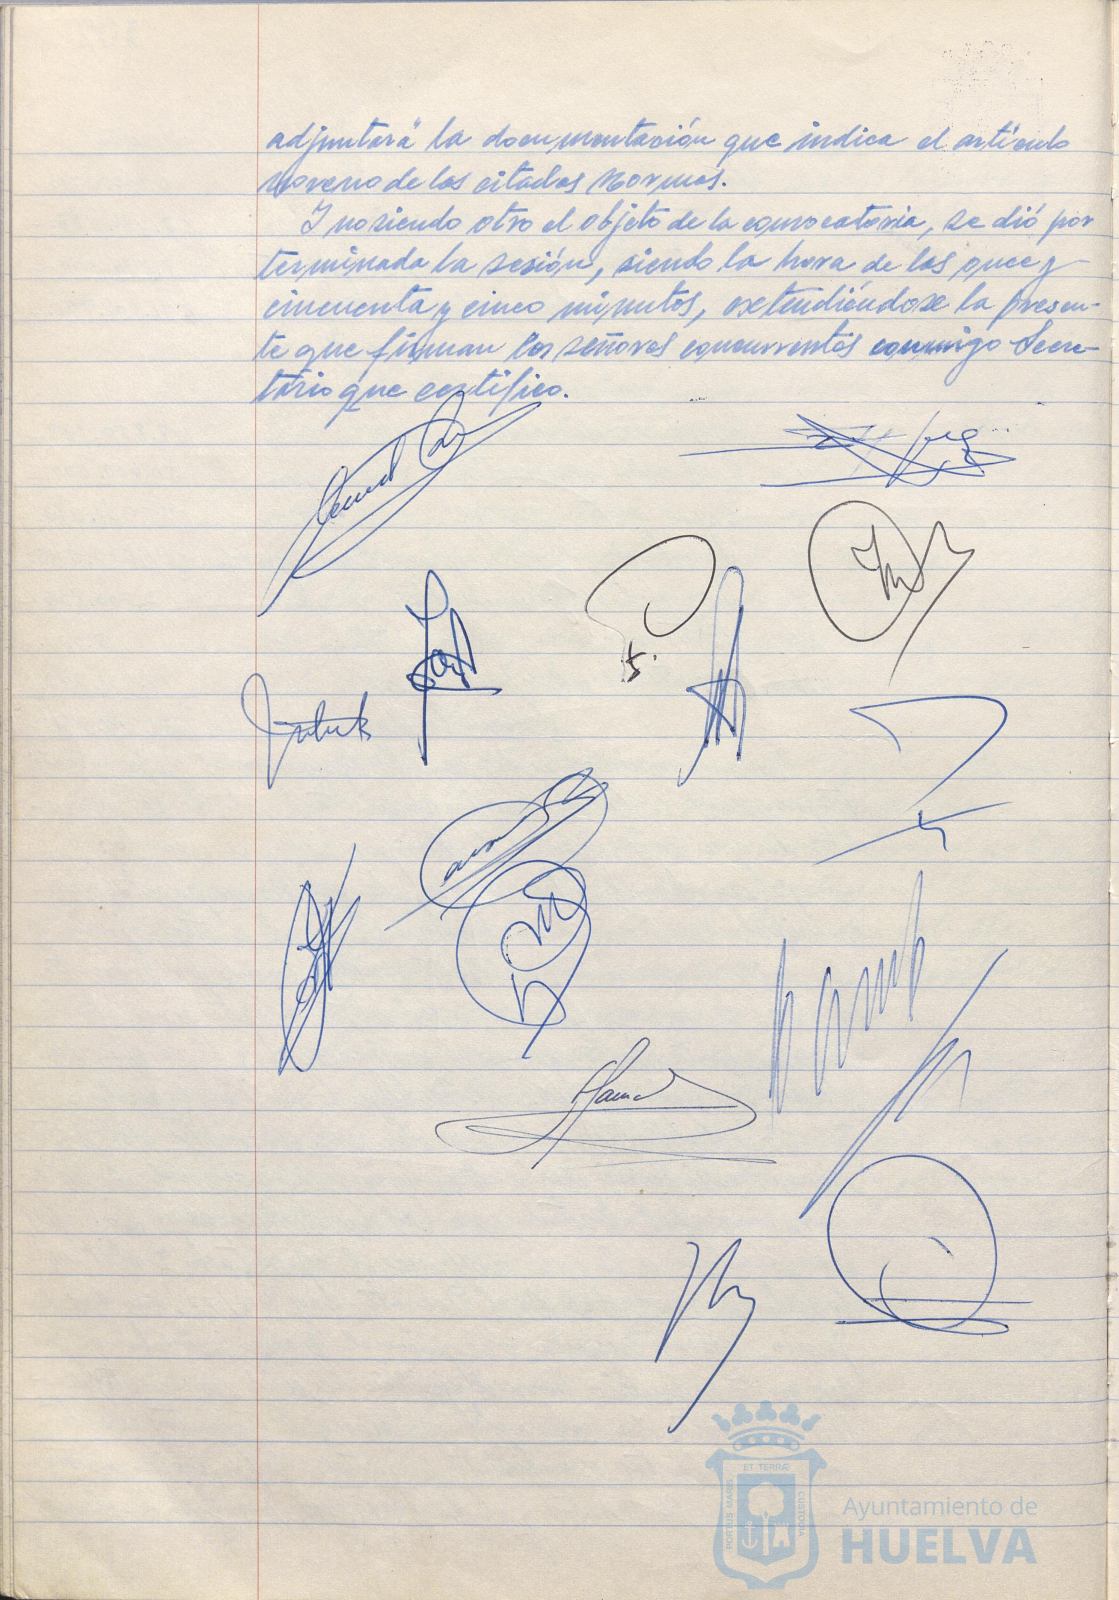 adjuntará" la documentación que indica el artículo
noveno de las citadas Normas.
Y no siendo otro el objeto de la convocatoria, se dió por
terminada la sesión, siendo la hora de las once y
cincuenta y cinco minutos, extendiéndose la presen-
te que firman los señores concurrentes conmigo Secre-
tario que certifico.
PORTUS MARIS
ET TERRAE
CUSTODIA
Ayuntamiento de
HUELVA